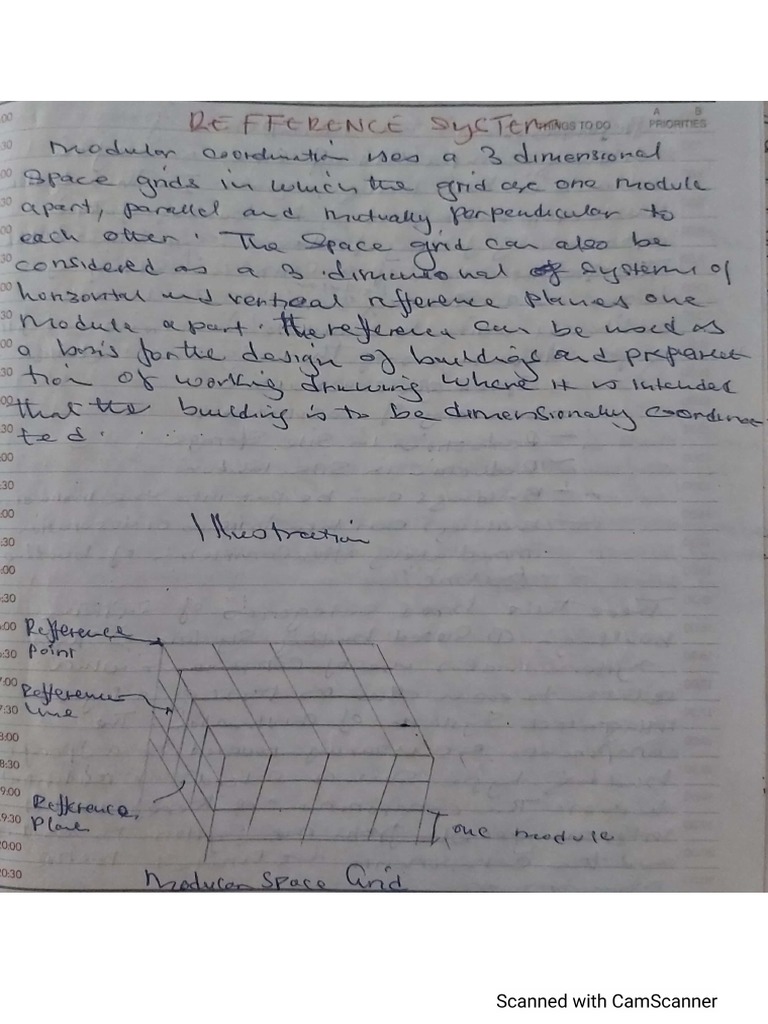 REFFERENCE SYSTEM THINGS TO DO A B PRIORITIES
Modular coordination uses a 3 dimensional
Space grids in which the grid are one module
apart, parallel and mutually perpendicular to
each other. The Space grid can also be
considered as a 3 dimensional of systems of
horizontal and vertical refference planes one
module apart. The refference can be used as
a basis for the design of buildings and prepara
tion of working drawing where it is intended
that the building is to be dimensionally coordina
ted.
Illustration
Refference
Point
Refference
line
Refference
Plane
one module
Modular Space Grid
Scanned with CamScanner